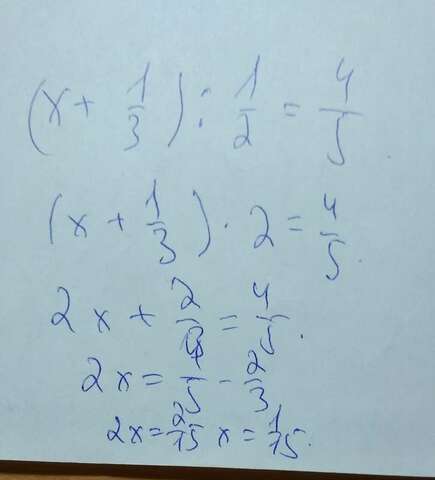 (x + 1/3) : 1/2 = 4/5.
(x + 1/3) · 2 = 4/5.
2x + 2/3 = 4/5.
2x = 4/5 - 2/3
2x = 2/15 x = 1/15.